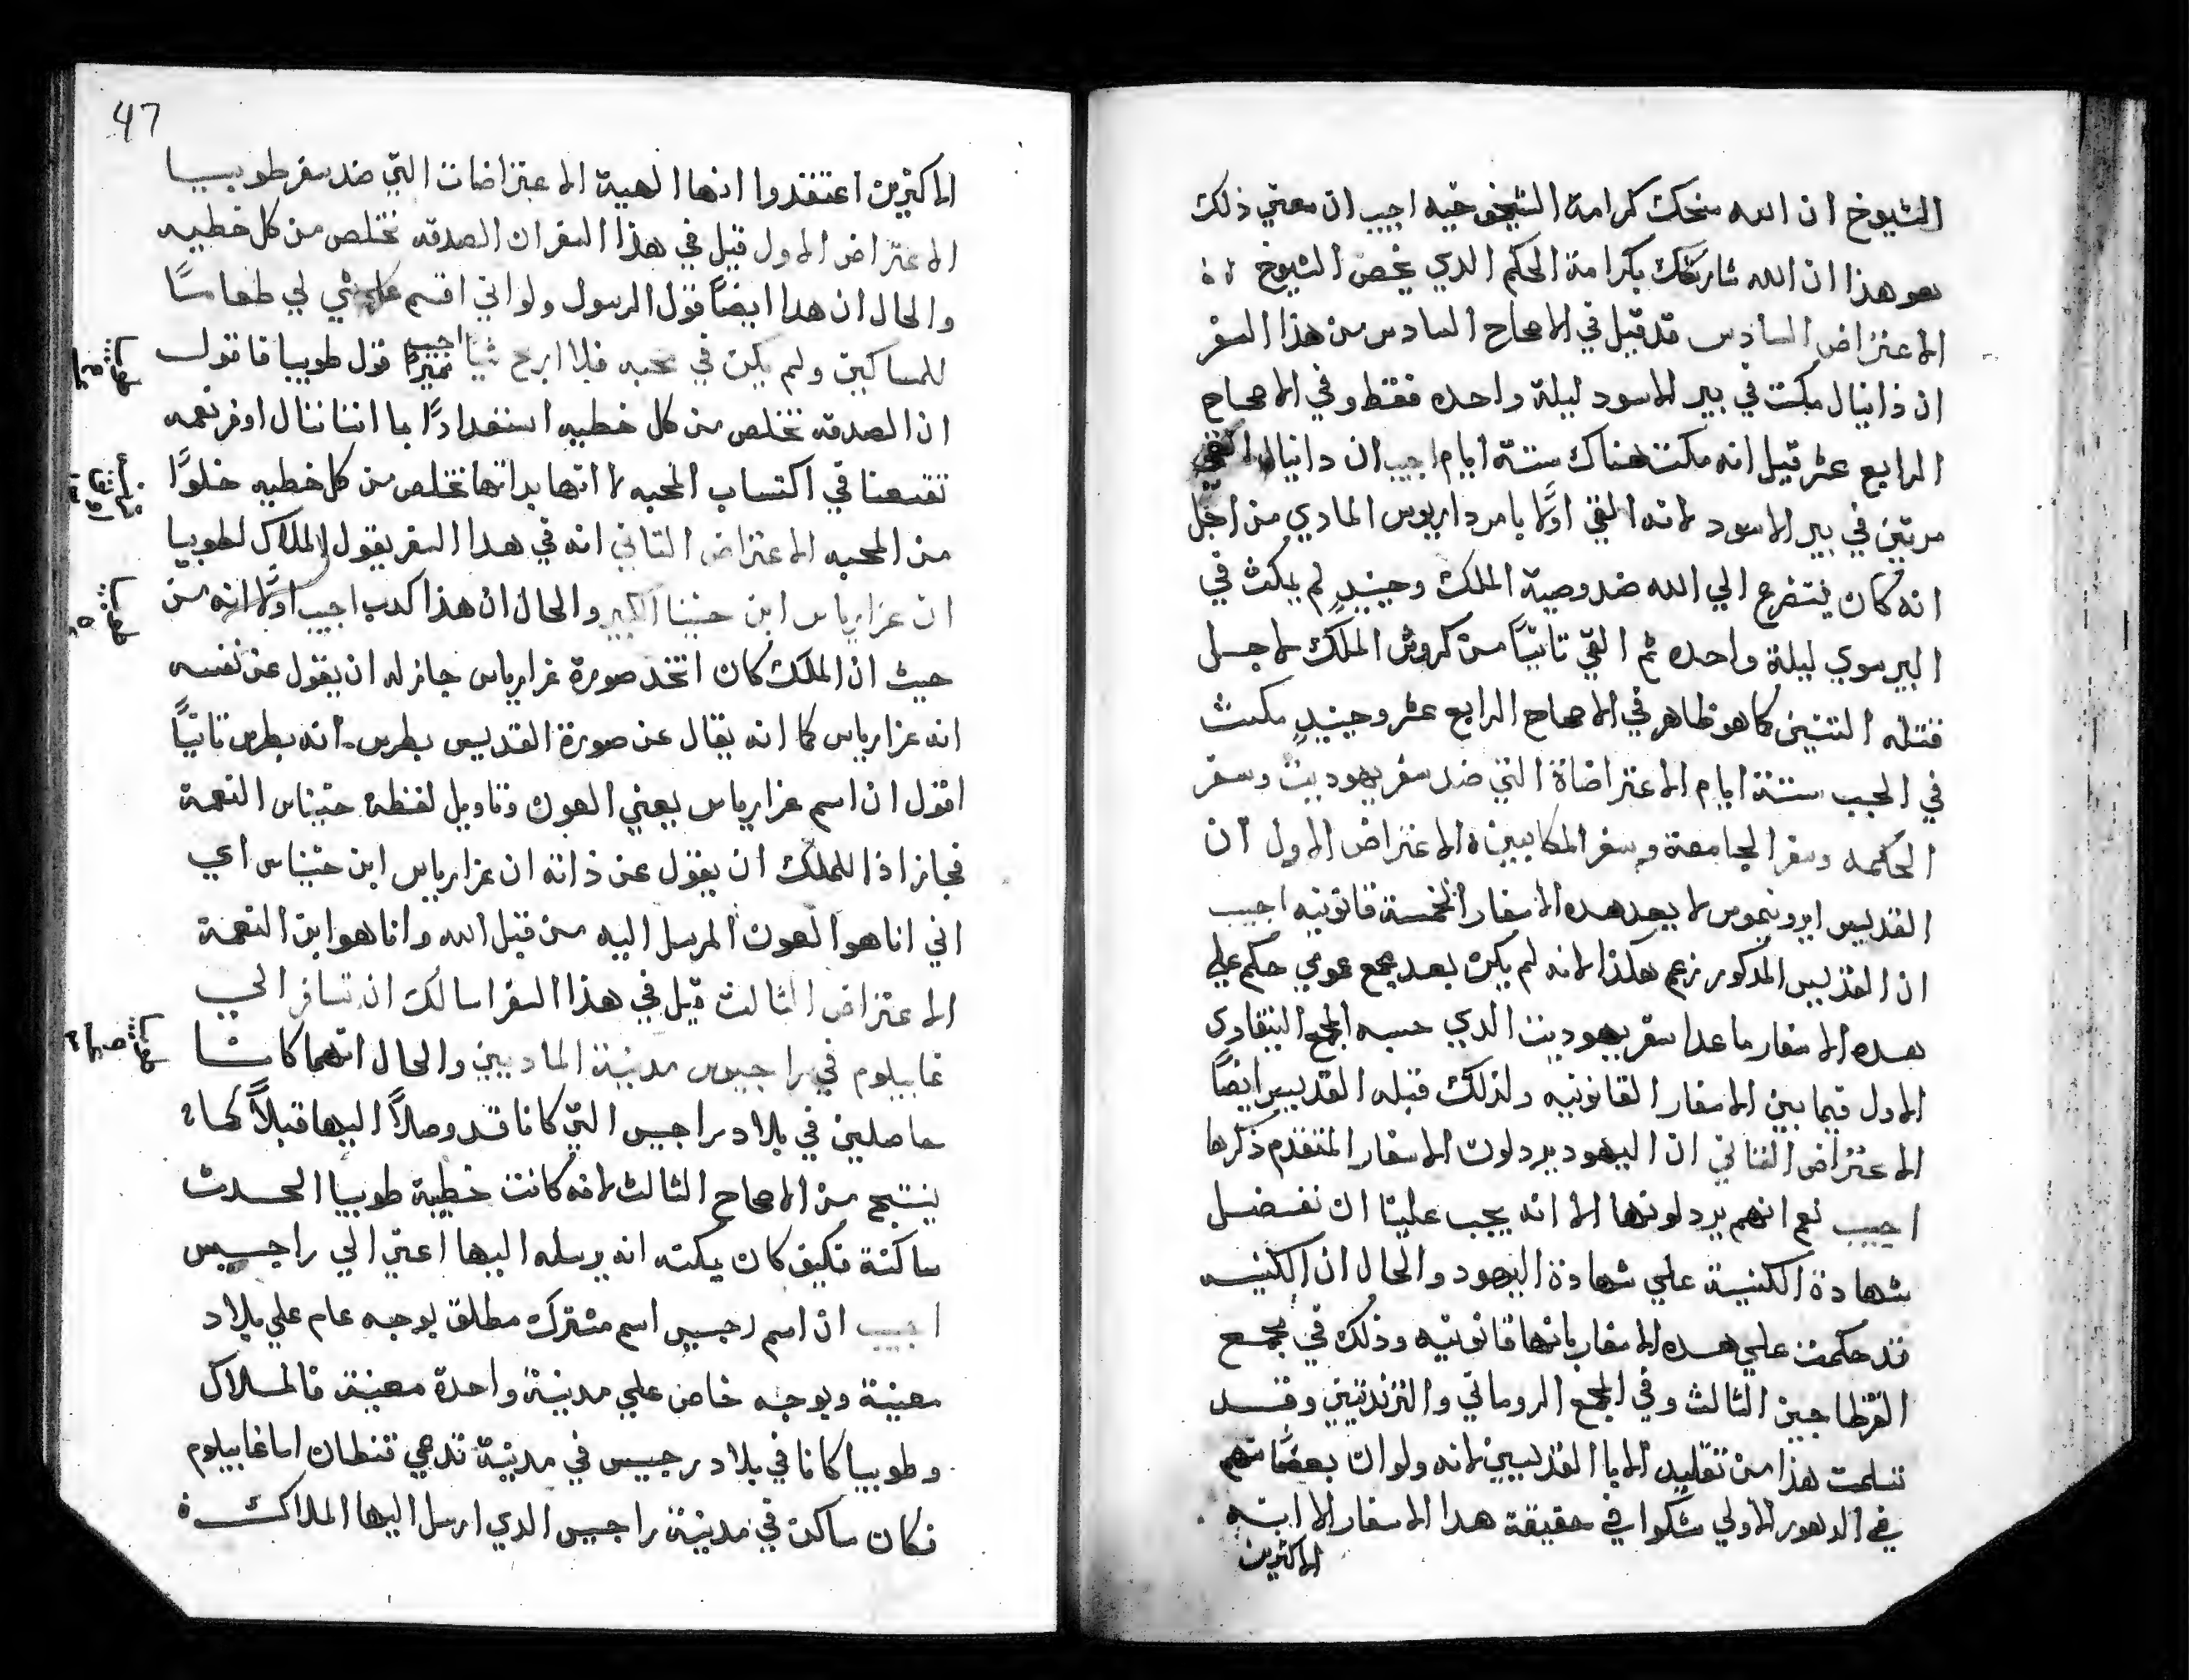 الشيوخ ان الله منحك كرامة الشيخوخيه اجيب ان معني ذلك
هو هذا ان الله شاركك بكرامة الحكم الدي يخص الشيوخ
الاعتراض السادس قد قيل في الاصحاح السادس من هذا السفر
ان ذانيال مكت في بير الاسود ليلة واحده فقط وفي الاصحاح
الرابع عشر قيل انه مكت هناك ستة ايام اجيب ان دانيال القي
مرتين في بير الاسود لانه القي اولًا بامر داريوس المادي من اجل
انه كان يتضرع الي الله ضد وصية الملك وحينيدٍ لم يمكث في
البير سوي ليلة واحده ثم القي تانيًا من كروش الملك لاجل
قتله التنين كما هو ظاهر في الاصحاح الرابع عشر وحينيدٍ مكث
في الجب ستة ايام الاعتراضاة التي ضد سفر يهوديت وسفر
الحكمه وسفر الجامعة وسفر المكابيين الاعتراض الاول ان
القديس ايرونيموس لا يعد هده الاسفار الخمسة قانونيه اجيب
ان القديس المدكور زعم هكذا لانه لم يكن بعد مجمع عومي حكم علي
هده الاسفار ما عدا سفر يهوديت الدي حسبه المجمع النيقاوي
الاول فيما بين الاسفار القانونيه ولذلك قبله القديس ايضًا
الاعتراض التاني ان اليهود يردلون الاسفار المتقدم ذكرها
اجيب نعم انهم يردلونها الا انه يجب علينا ان نفضل
شهادة الكنيسة علي شهادة اليهود والحال ان الكنيسه
قد حكمت علي هده الاسفار بانها قانونيه وذلك في مجمع
القرطاجين الثالث وفي المجمع الروماني والتريدنتيني وقد
تسلمت هذا من تقليد الابا القديسين لانه ولو ان بعضًا منهم
في الدهور الاولي شكوا في حقيقة هدا الاسفار الا ان
الاكثرين
47
الاكثرين اعتقدوا انها الهية الاعتراضات التي ضد سفر طوبيا
الاعتراض الاول قيل في هذا السفر ان الصدقه تخلص من كل خطيه
والحال ان هدا ايضًا قول الرسول ولو اني اقسم كل شي لي طعامًا
للمساكين ولم يكن في محبه فلا اربح شيا اجيب قول طوبيا قايول
ان الصدقه تخلص من كل خطيه استعدادًا بما اننا ننال اوفر نعمه
تسعفنا في اكتساب المحبه لا انها بداتها تخلص من كل خطيه خلوًا
من المحبه الاعتراض التاني انه في هدا السفر يقول الملاك لطوبيا
ان عزارياس ابن حنينا الكبير والحال ان هذا كدب اجيب اولًا انه من
حيث ان الملك كان اتخد صورة عزارياس جاز له ان يقول عن نفسه
انه عزارياس كما انه يقال عن صورة القديس بطرس انه بطرس تانيًا
اقول ان اسم عزارياس يعني العون وتاويل لفظة حنيناس النعمة
فجاز اذا للملك ان يقول عن ذاته ان عزارياس ابن حنيناس اي
اني انا هو العون المرسل اليه من قبل الله وانا هو ابن النعمة
الاعتراض الثالت قيل في هذا السفر اسالك ان تسافر الي
غابيلوم في راجيوس مدينة الماديين والحال انهما كانا
حاصلين في بلاد راجيس التي كانا قد وصلاً اليها قبلاً كما
ينتج من الاصحاح الثالث لانه كانت خطيبة طوبيا الحدث
ساكنة فكيف كان يمكنه انه يرسله اليها اعني الي راجيس
اجيب ان اسم رجيس اسم مشترك مطلق بوجه عام علي بلاد
معينة وبوجه خاص علي مدينة واحدة معينة فالملاك
وطوبيا كانا في بلاد رجيس في مدينة تدعي تنطان اما غابيلوم
فكان ساكن في مدينة راجيس الدي ارسل اليها الملاك